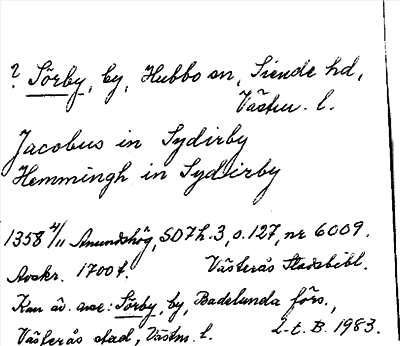 ? Sörby, by, Hubbo sn, Siende hd,
Västm. l.
Jacobus in Sydirby
Hemmingh in Sydirby
1358 4/11 Anundshög, SD7h.3, s.127, nr 6009.
Avskr. 1700t. Västerås Stadsbibl.
Kan äv. avse: Sörby, by, Badelunda förs.,
Västerås stad, Västm. l. L-E. B. 1983.